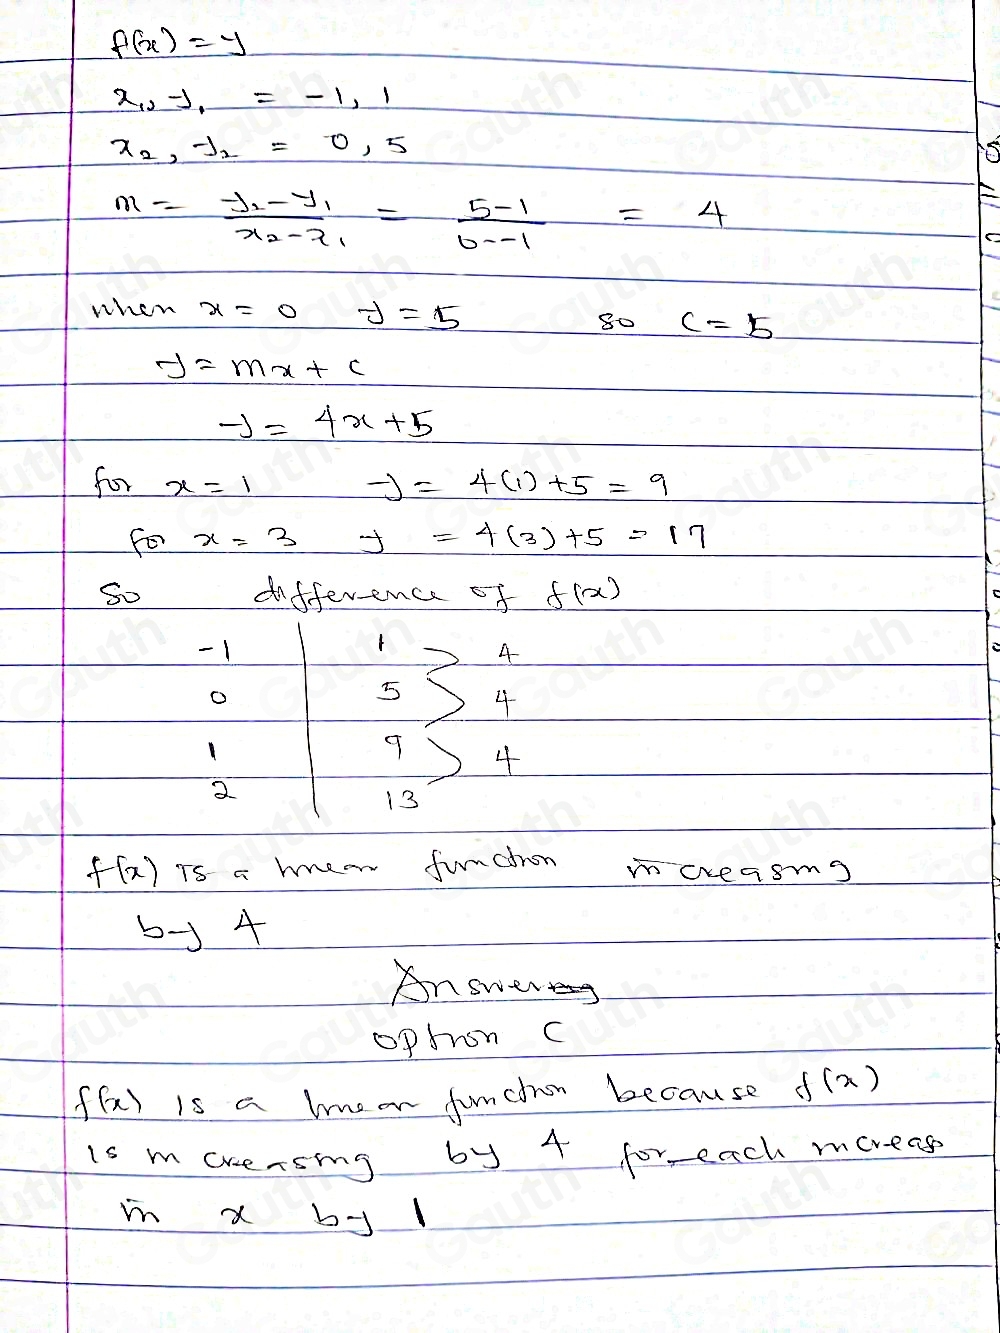 f(x) = y
x₁, y₁ = -1, 1
x₂, y₂ = 0, 5
m = y₂-y₁/x₂-x₁ = 5-1/0--1 = 4
when x = 0 y = 5 so c = 5
y = mx + c
y = 4x + 5
for x = 1 y = 4(1)+5 = 9
for x = 3 y = 4(3)+5 = 17
So difference of f(x)
-1 | 1 4
0 | 5 4
1 | 9 4
2 | 13
f(x) is a linear function increasing
by 4
Answer
option C
f(x) is a linear function because f(x)
is increasing by 4 for each increas
in x by 1